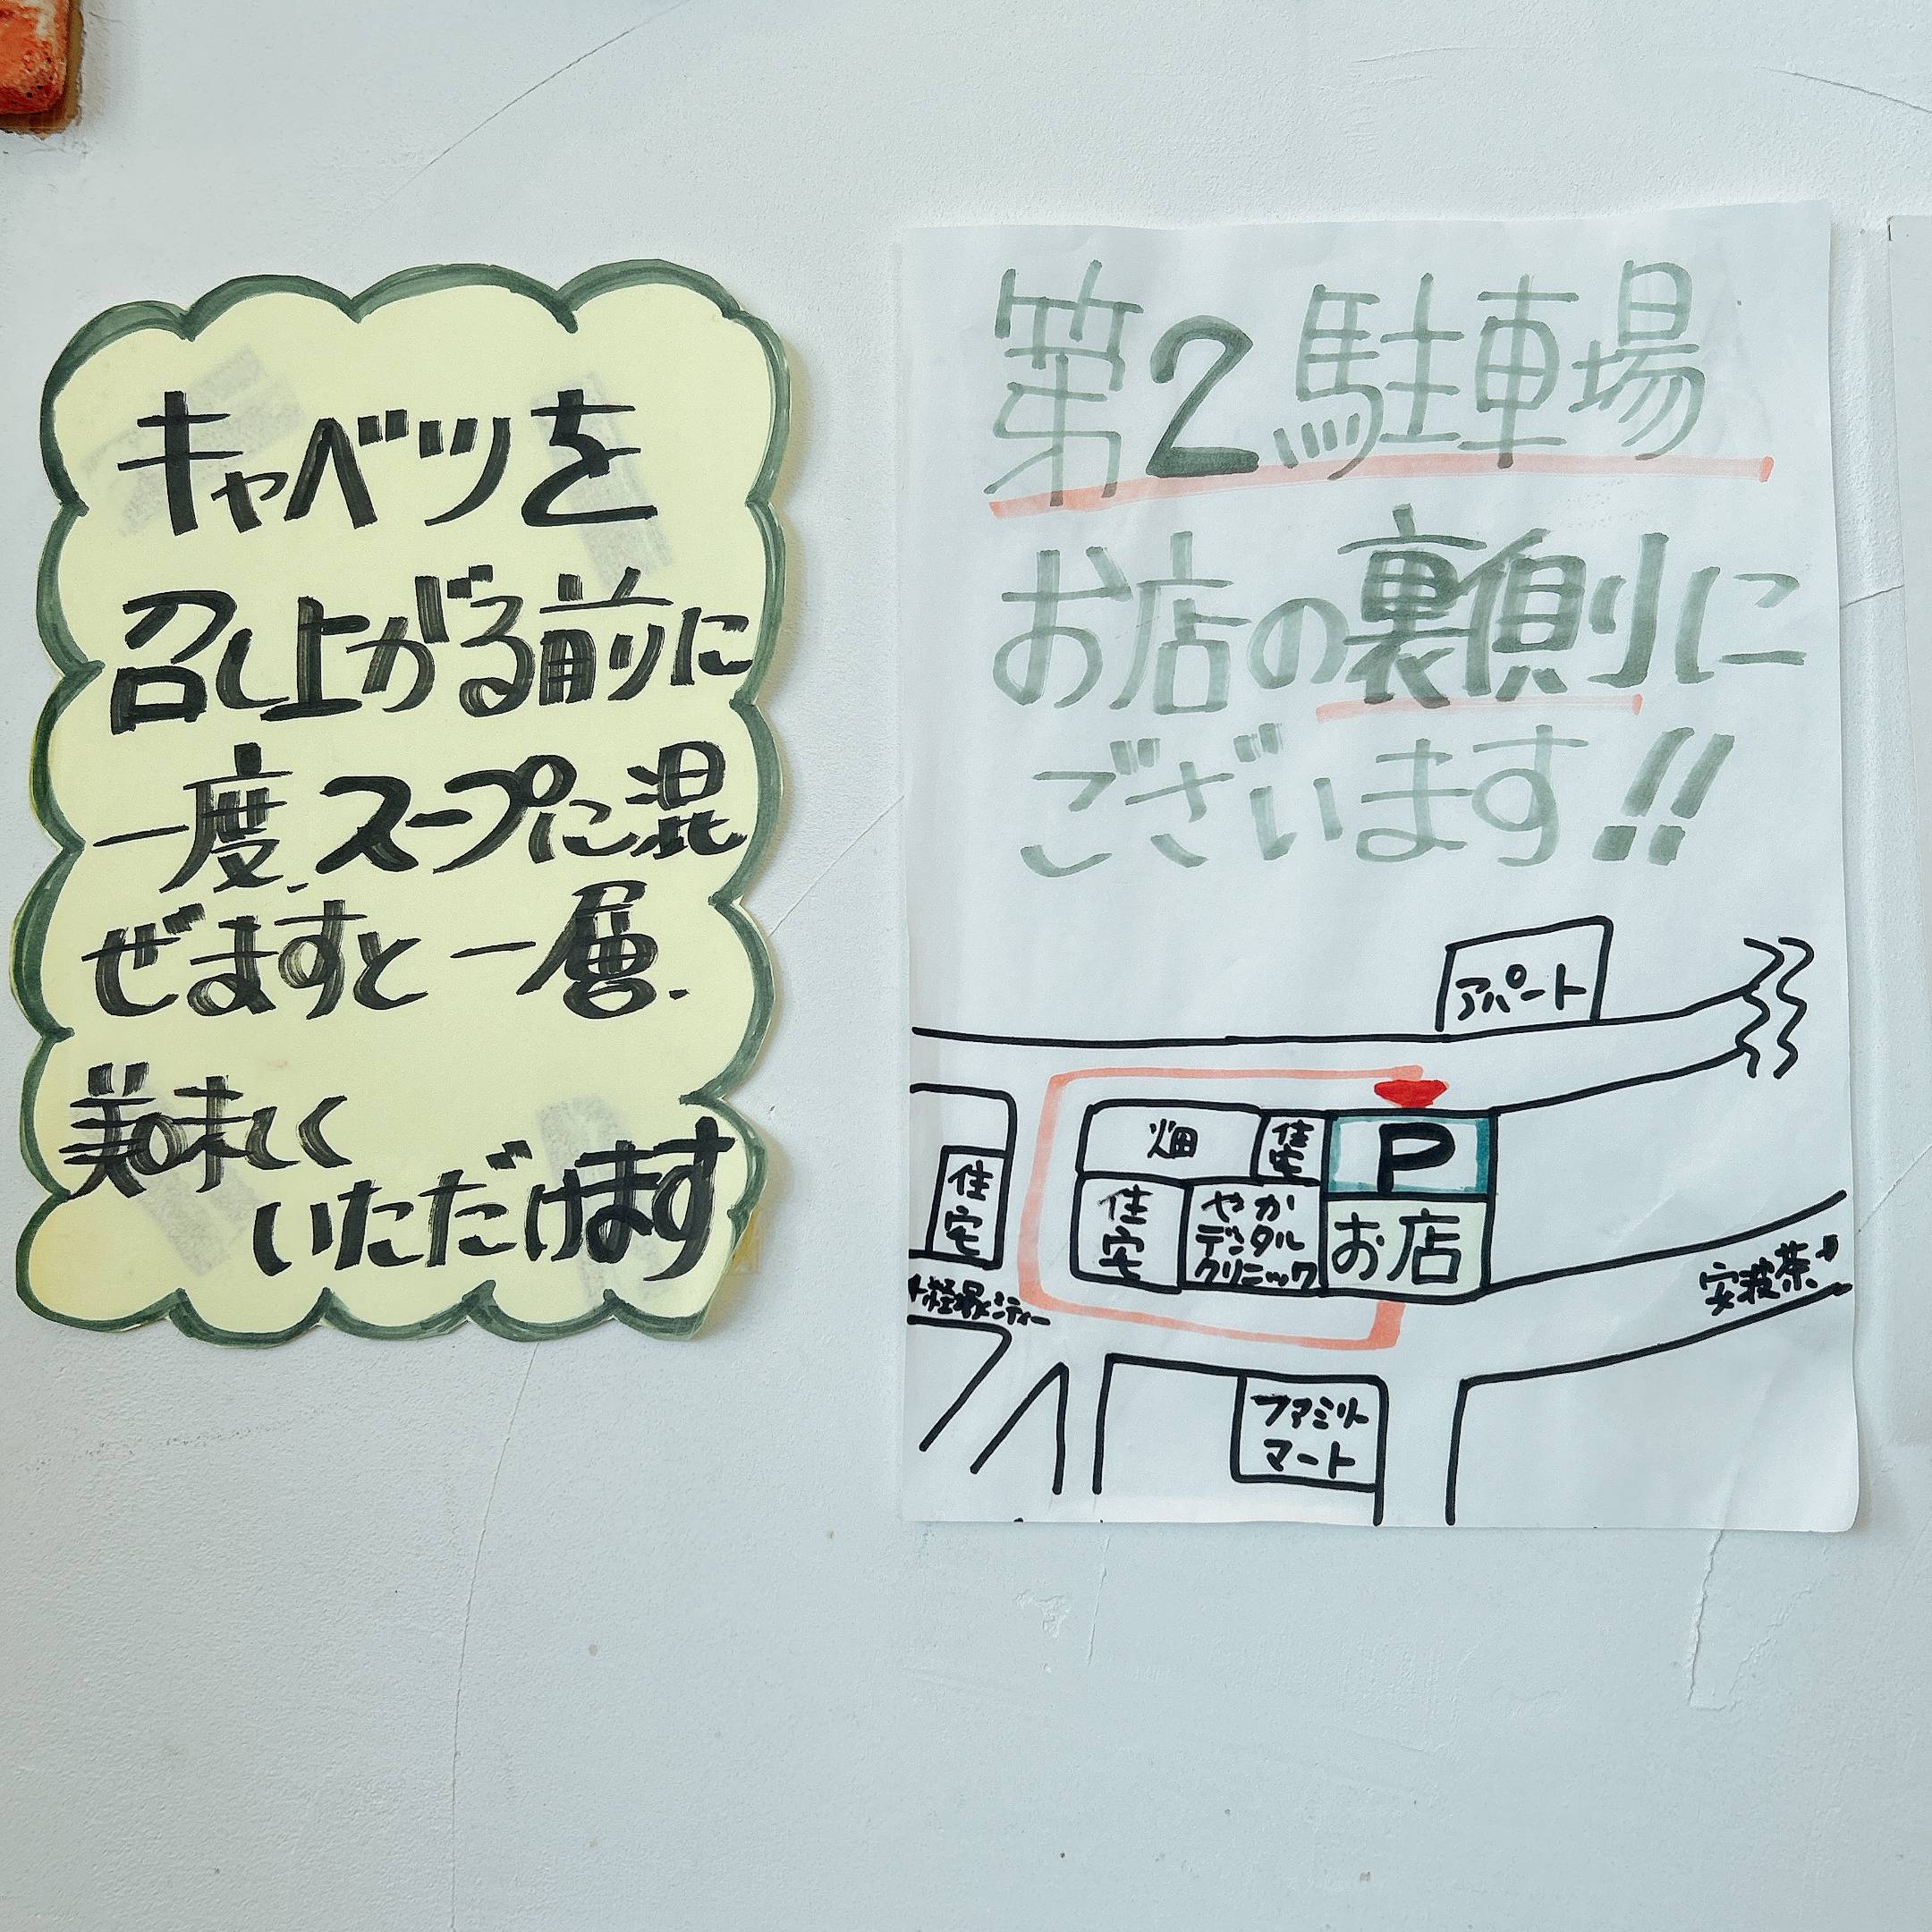 キャベツを
召し上がる前に
一度、スープに混
ぜますと一層、
美味しく
いただけます
第2駐車場
お店の裏側に
ございます!!
アパート
畑
住宅
P
住宅
住宅
やか
デンタル
クリニック
お店
安波茶
ファミリー
マート